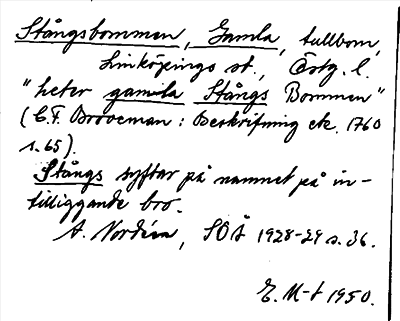 Stångsbommen, Gamla, tullbom,
Linköpings st., Östg. l.
"heter gamla Stångs Bommen"
(C.F. Broocman: Beskrifning etc. 1760
s. 65).
Stångs syftar på namnet på in-
tilliggande bro.
A. Nordén, SOÅ 1928-29 s. 36.
E. M-t 1950.